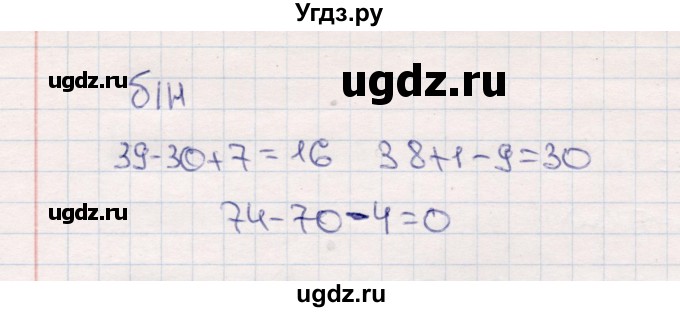 Угдз.ру
ugdz.ru
ugdz.ru
б/н
ugdz.ru
39-30+7=16 38+1-9=30
ugdz.ru
74-70-4=0
ugdz.ru
ugdz.ru